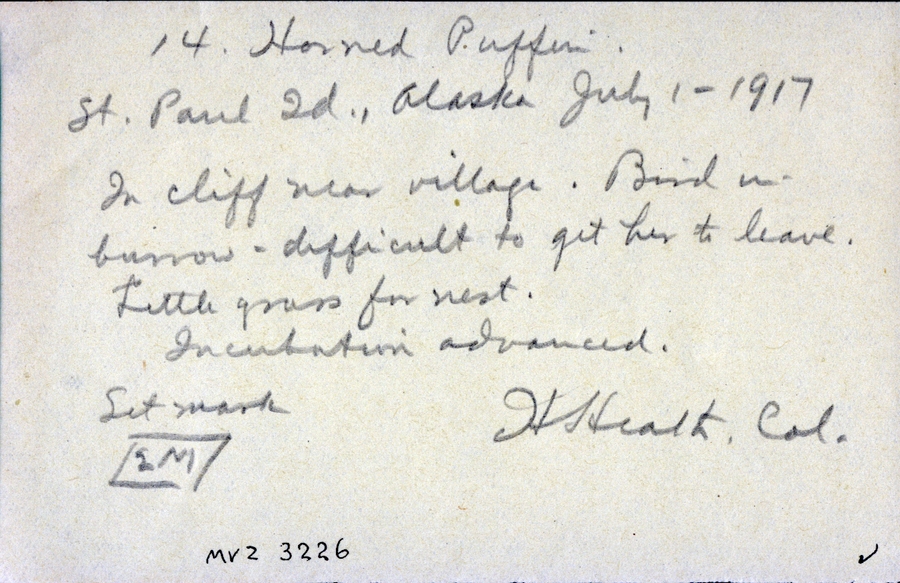 14. Horned Puffin.
St. Paul Id., Alaska July 1-1917
In cliff near village. Bird in
burrow - difficult to get her to leave.
Little grass for nest.
Incubation advanced.
Set mark
H Heath, Col.
MVZ 3226